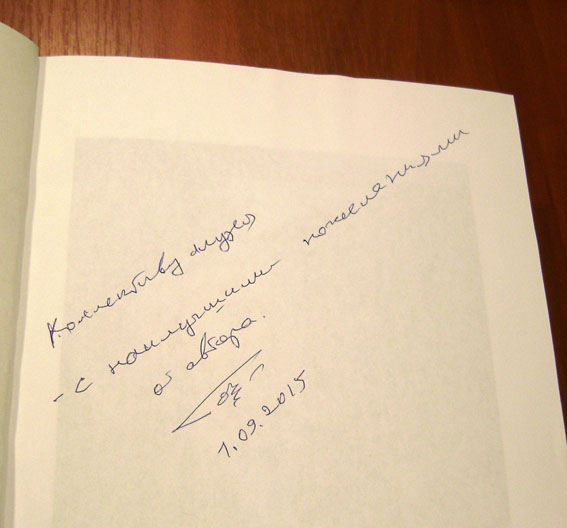 Коллективу музея
- с наилучшими пожеланиями
от автора.
1.09.2015